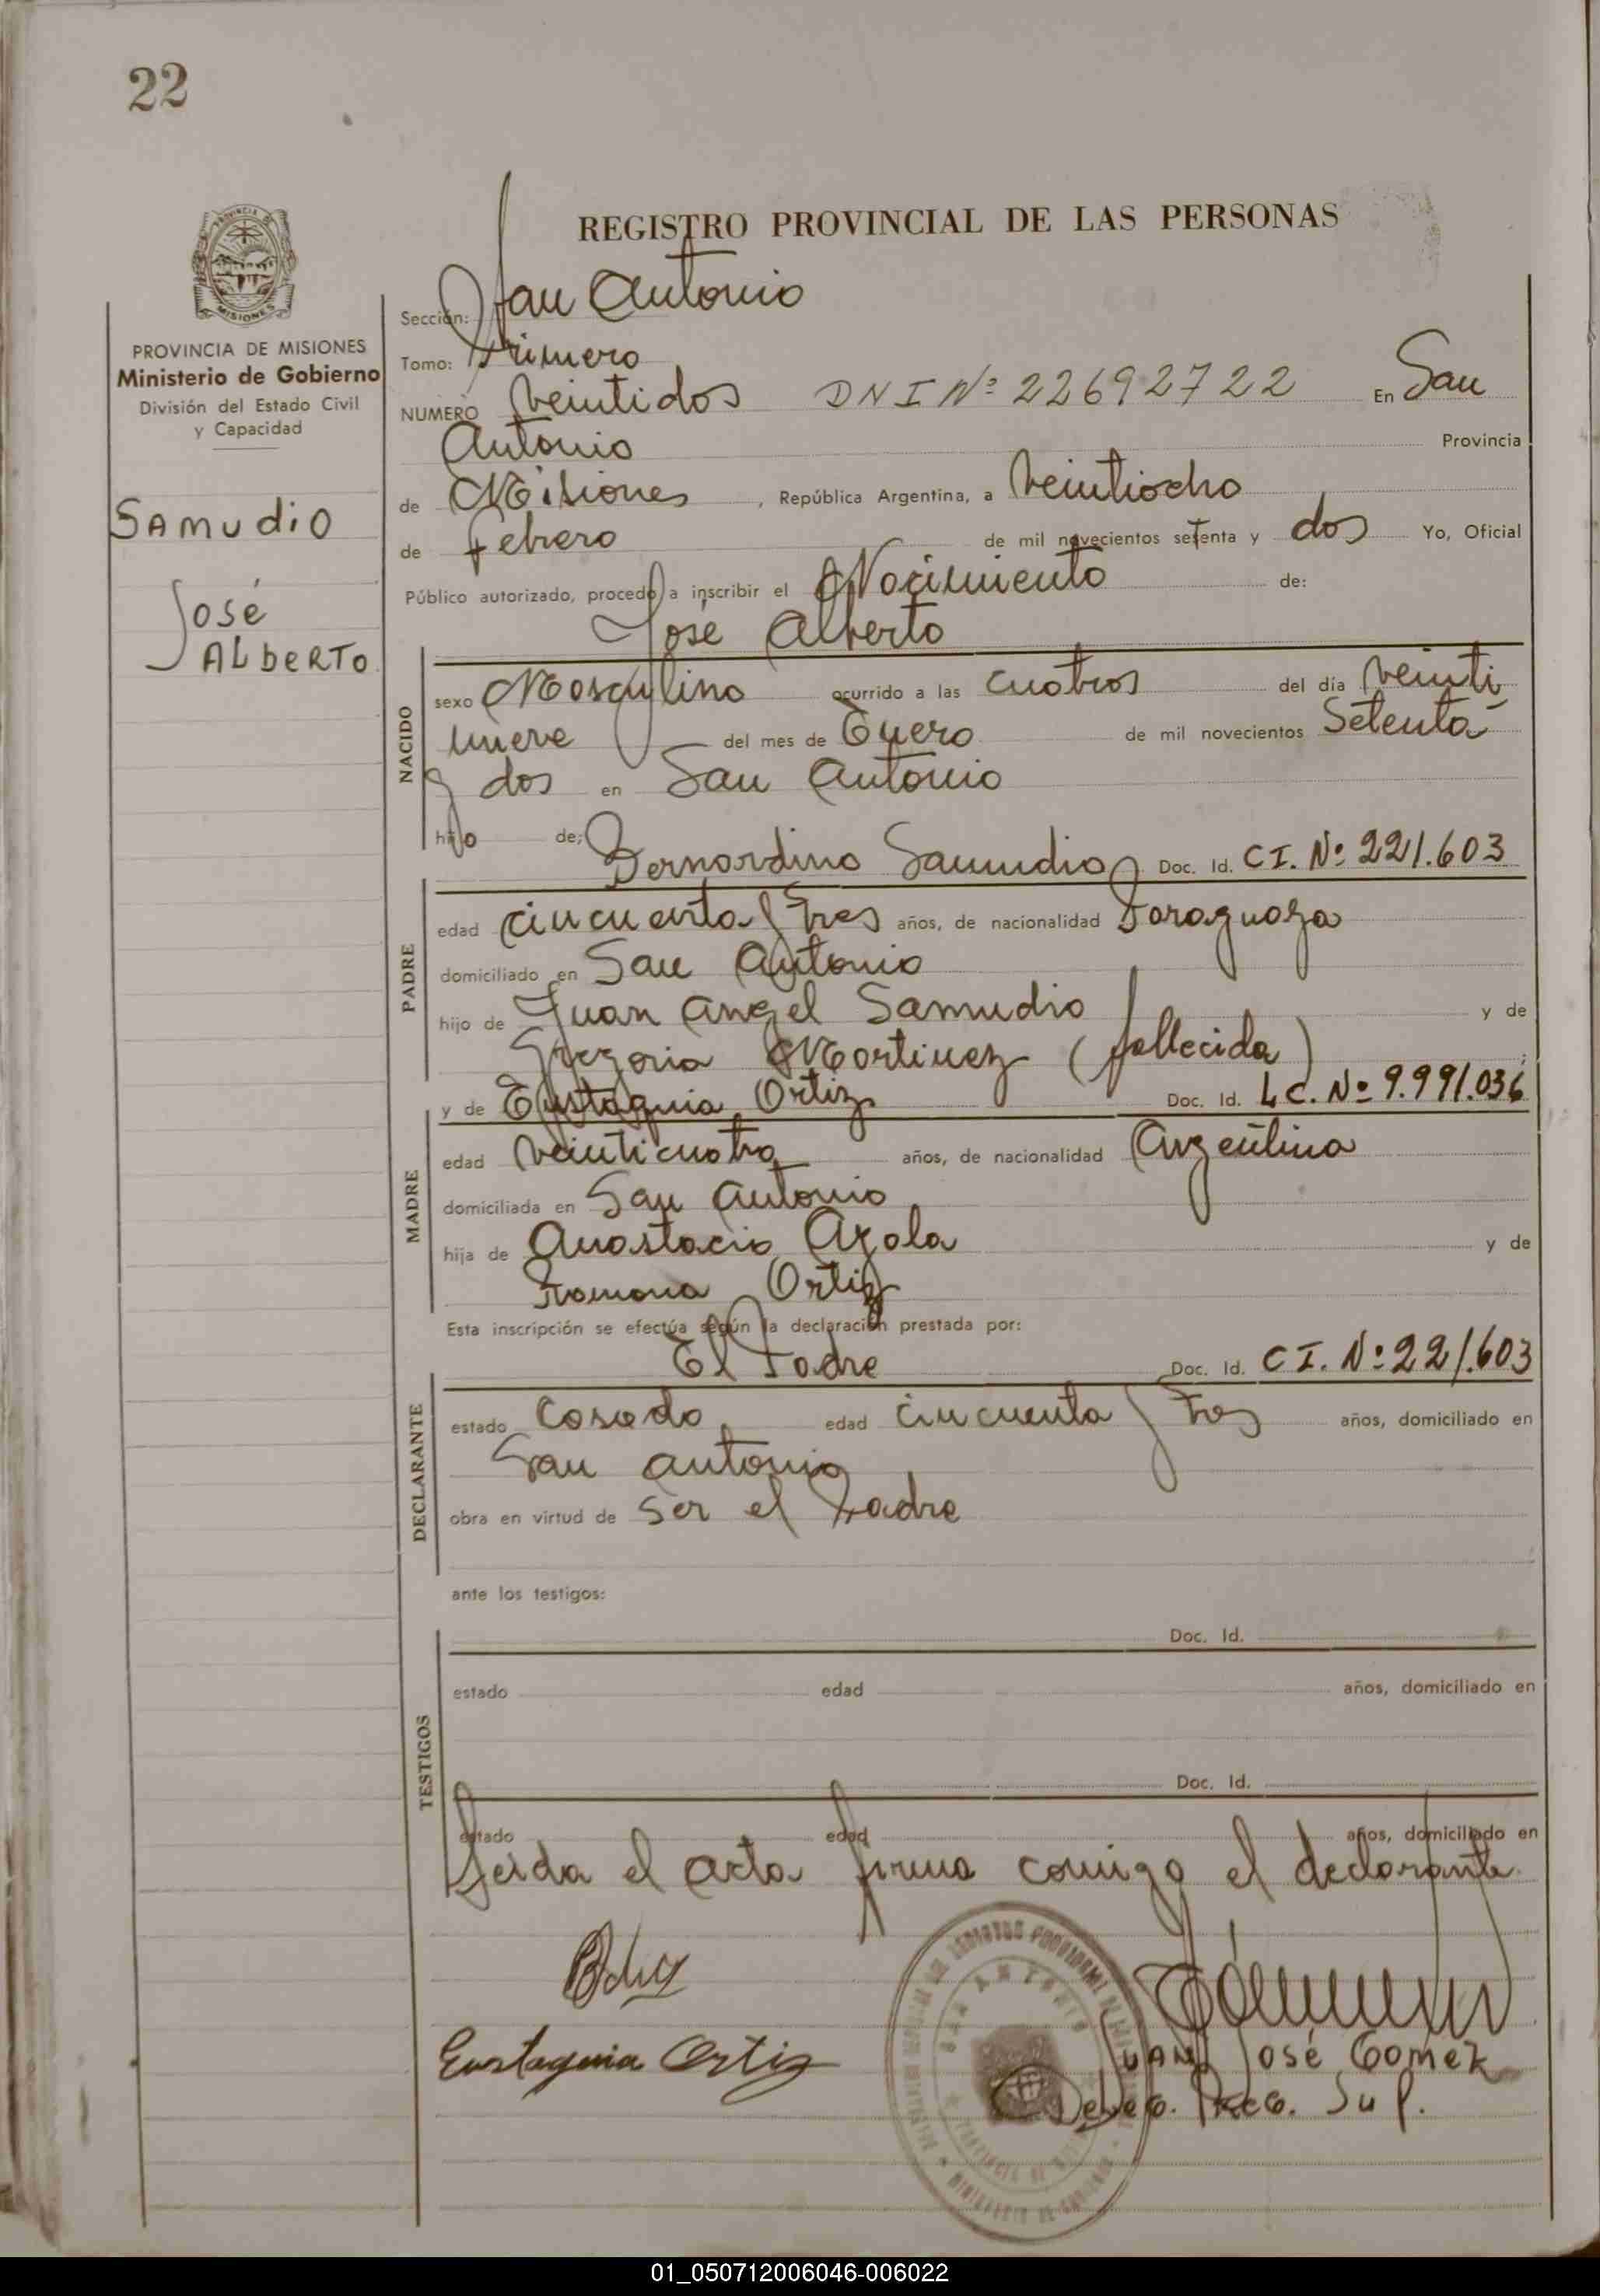 22
REGISTRO PROVINCIAL DE LAS PERSONAS
PROVINCIA DE MISIONES
Ministerio de Gobierno
División del Estado Civil
y Capacidad
SAMudio
José
ALbeRTo
Sección: San Antonio
Tomo: Primero
NUMERO veintidos DNI Nº 22692722 En San
Antonio Provincia
de Misiones, República Argentina, a veintiocho
de febrero de mil novecientos setenta y dos Yo, Oficial
Público autorizado, procedo a inscribir el Nacimiento de:
José Alberto
NACIDO
sexo Masculino ocurrido a las cuatros del día veinti
nueve del mes de Enero de mil novecientos Setenta
y dos en San Antonio
hijo de: Bernardino Samudio Doc. Id. CI. Nº 221.603
PADRE
edad cincuenta y tres años, de nacionalidad Paraguaya
domiciliado en San Antonio
hijo de Juan Angel Samudio y de
Gregoria Martinez (fallecida)
y de Eustaquia Ortiz Doc. Id. L.C. Nº 9.991.036
MADRE
edad veinticuatro años, de nacionalidad Argentina
domiciliada en San Antonio
hija de Anastacio Ayala y de
Ramona Ortiz
Esta inscripción se efectúa según la declaración prestada por:
El Padre Doc. Id. CI. Nº 221.603
DECLARANTE
estado Casado edad cincuenta y tres años, domiciliado en
San Antonio
obra en virtud de Ser el Padre
ante los testigos:
TESTIGOS
Doc. Id.
estado edad años, domiciliado en
Doc. Id.
estado edad años, domiciliado en
Leida el acta firma comigo el declarante
Eustaquia Ortiz
SAN ANTONIO
JUAN José Gomez
Deleg. Reg. Sup.
01_050712006046-006022